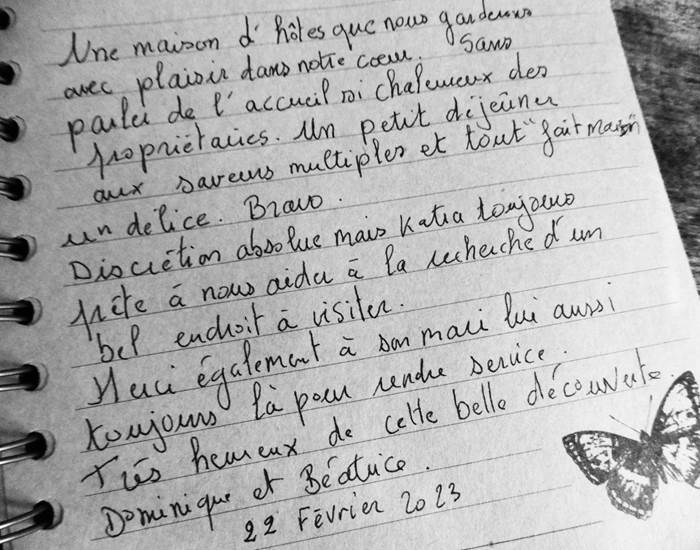 Une maison d'hôtes que nous garderons
avec plaisir dans notre cœur. Sans
parler de l'accueil si chaleureux des
propriétaires. Un petit déjeûner
aux saveurs multiples et tout "fait maison"
un délice. Bravo.
Discrétion absolue mais Katia toujours
prête à nous aider à la recherche d'un
bel endroit à visiter.
Merci également à son mari lui aussi
toujours là pour rendre service.
Très heureux de cette belle découverte.
Dominique et Béatrice.
22 Février 2023